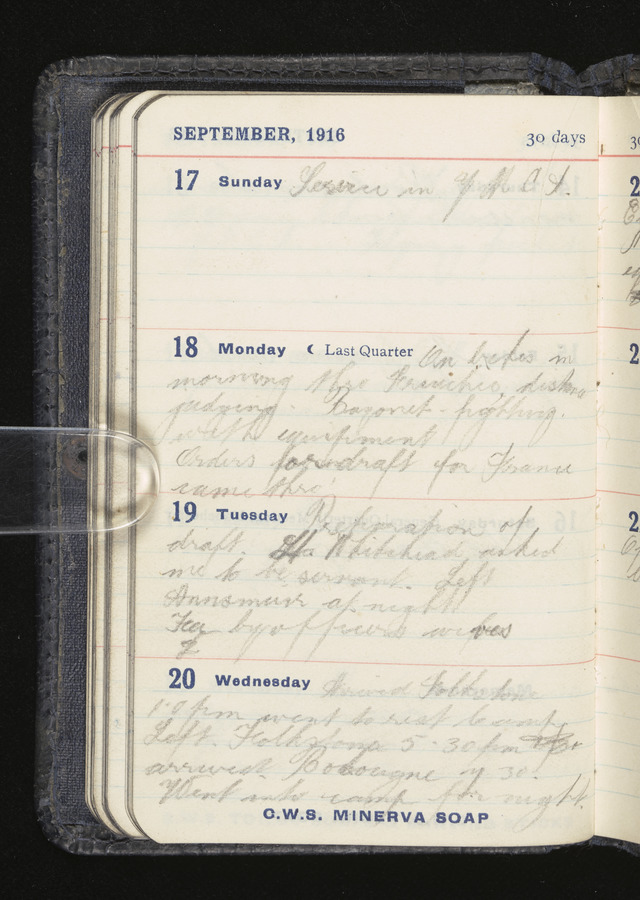 SEPTEMBER, 1916 30 days
17 Sunday Service in
18 Monday ☾ Last Quarter in
morning thro
judging. Bayonet-fighting.
with equipment
Orders for draft for France
came thro'
19 Tuesday Preparation of
draft. Whitehead asked
me to be servant. Left
at night
Tea by officers wives
20 Wednesday Arrived Folkestone
1.0 pm went to rest camp
Left Folkstone 5-30 pm
arrived Boulougne 7 30.
Went into camp for night.
C.W.S. MINERVA SOAP